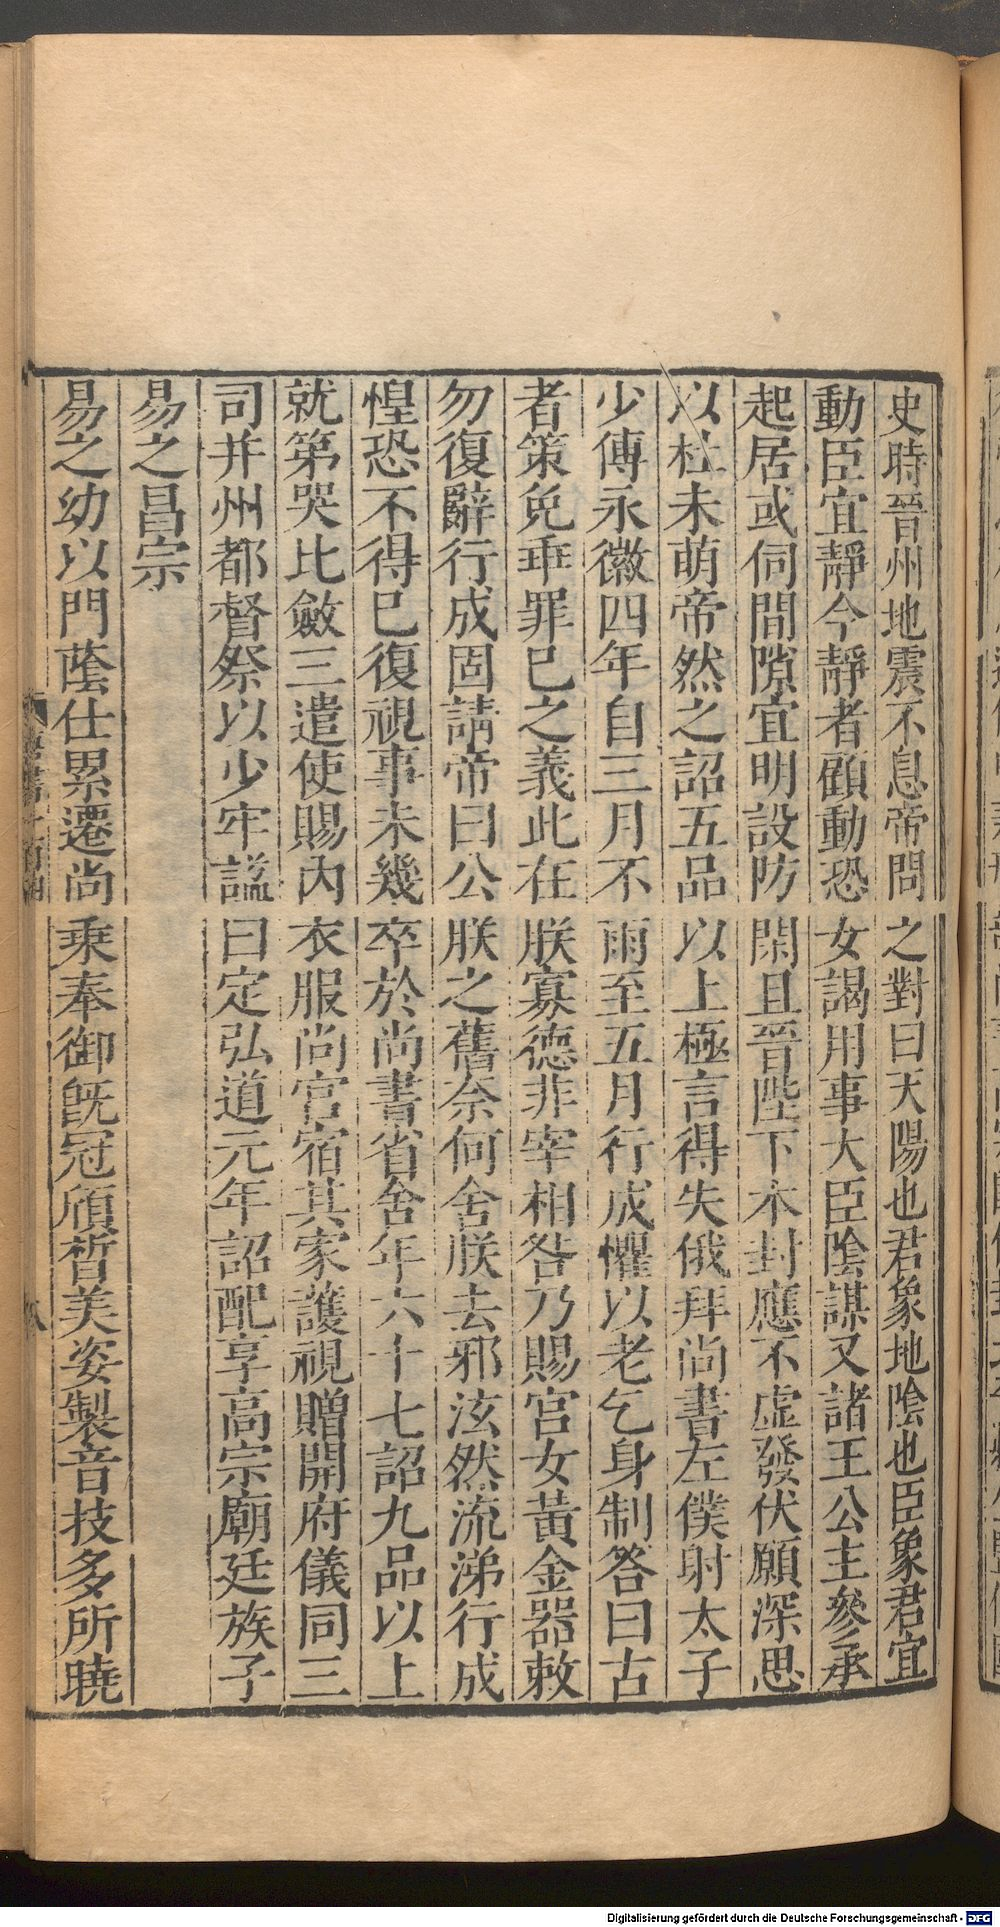 史時晉州地震不息帝問之對曰天陽也君象地陰也臣象君宜
動臣宜靜今靜者顧動恐女謁用事大臣陰謀又諸王公主參承
起居或伺間隙宜明設防閑且晉陛下本封應不虛發伏願深思
以杜未萌帝然之詔五品以上極言得失俄拜尚書左僕射太子
少傅永徽四年自三月不雨至五月行成懼以老乞身制答曰古
者策免乖罪已之義此在朕寡德非宰相咎乃賜宮女黃金器敕
勿復辭行成固請帝曰公朕之舊柰何舍朕去邪泫然流涕行成
惶恐不得巳復視事未幾卒於尚書省舍年六十七詔九品以上
就第哭比斂三遣使賜內衣服尚宮宿其家護視贈開府儀同三
司并州都督祭以少牢謚曰定弘道元年詔配享高宗廟廷族子
易之昌宗
易之幼以門蔭仕累遷尚乘奉御旣冠頎皙美姿製音技多所曉
八
Digitalisierung gefördert durch die Deutsche Forschungsgemeinschaft - DFG